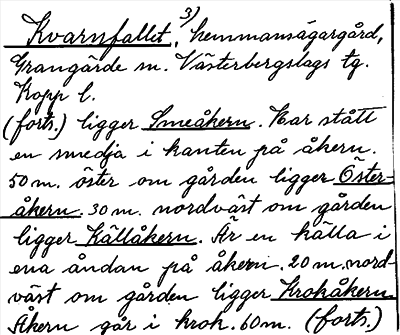 Kvarnfallet, 3) hemmansägargård,
Grangärde sn. Västerbergslags tg.
Kopp. l.
(forts.) ligger Smeåkern. Har stått
en smedja i kanten på åkern.
50 m. öster om gården ligger Öster-
åkern. 30 m. nordväst om gården
ligger Källåkern. Är en källa i
ena ändan på åkern. 20 m. nord-
väst om gården ligger Krokåkern.
Åkern går i krok. 60 m (forts.)